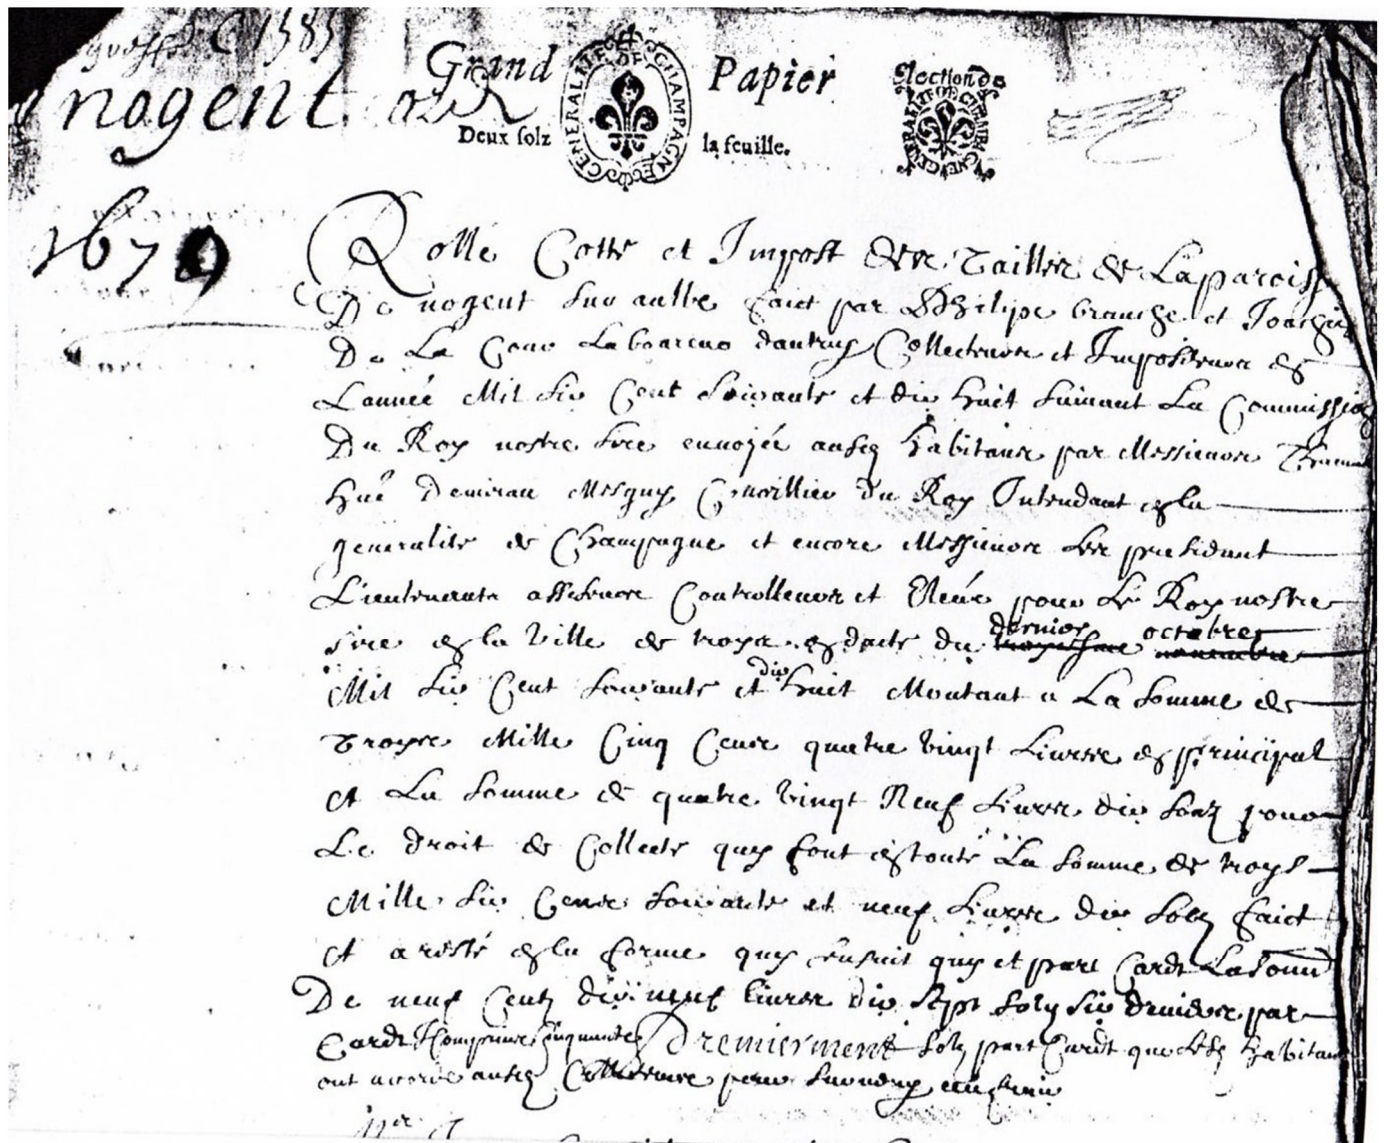 C 1585
nogent
Grand Papier
Deux solz la feuille.
GENERALITE DE CHAMPAGNE
Election de
GENERALITE DE CHAMPAGNE
1679
Rolle Cotte et Impost des Tailles de La parois
De nogent sur aulbe faict par Philipe branche et Joachin
De La Cour Laboureurs Collecteurs et Impositeurs en
Lannée Mil six Cent soixante et dix huit suivant La Commission
Du Roy nostre sire envoyée ausd habitans par Messieurs
hué demirau Conseillier du Roy Intendant en la
generalité de Champagne et encore Messieurs les president
Lieutenants assesseurs Controlleurs et Eleus pour Le Roy nostre
sire en la Ville de troyes en dacte du dernier octobre
Mil six Cent soixante et dix huit Montant a La somme de
troyes Mille Cinq Cens quatre vingt Livres en principal
et La somme de quatre vingt Neuf Livres dix solz pour
Le droit de Collecte quy font en toute La somme de troys
Mille six Cens soixante et neuf Livres dix solz faict
et aresté en la forme quy ensuit quy et part Cardt La somme
De neuf Centz dix neuf livres dix sept solz six deniers par
Cardt Compris Cinquante Premierment solz part Cardt que lesd habitans
ont acordé ausd Collecteurs pour